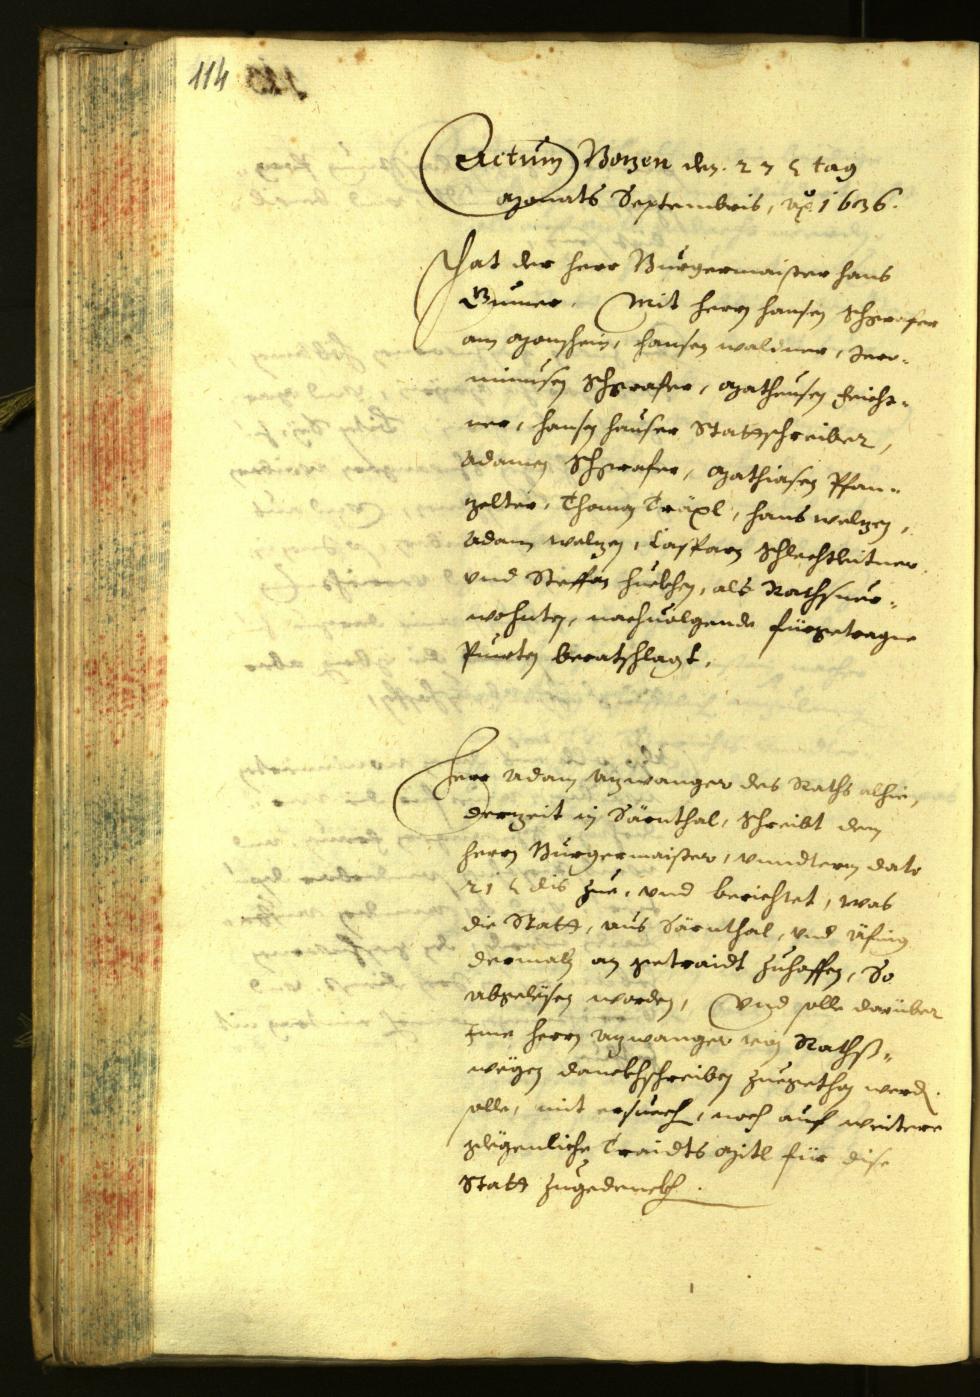 114
Actum Bozen den. 27 tag
Monats Septembris, Ao 1636.
Hat der herr Burgermaister Hans
Gumer. Mit herrn Hansen Schgrafer
am Monschein, Hansen Waldner, Jero-
nimusen Schgrafer, Matheusen Feicht-
ner, Hansen Hauser Stattschreiber,
Adamen Schgrafer, Mathiasen Pfan-
zelter, Thoman Träxl, Hans Welzen,
Adam Welzen, Casparn Schlechtleitner
vnd Steffan Huebhen, als Rathsuer-
wohnten, nachuolgende fürgetragne
Puncten beratschlagt.
Herr Adam Anwanger des Raths alhie,
derzeit in Särnthal, Schreibt dem
herrn Burgermaister, vnndterm dato
21 dis zue, vnd berichtet, was
die Statt, aus Särnthal, vnd Äfing
dermaln an getraidt zuhaffen, So
abgelesen worden, Vnd solle darüber
Ime herrn Anwanger von Rathß-
wegen danckhschreiben zuegethan werd.
solle, mit ersuech, noch auf weitere
glegenliche Traidts Mitl für dise
Statt zugedenckh.